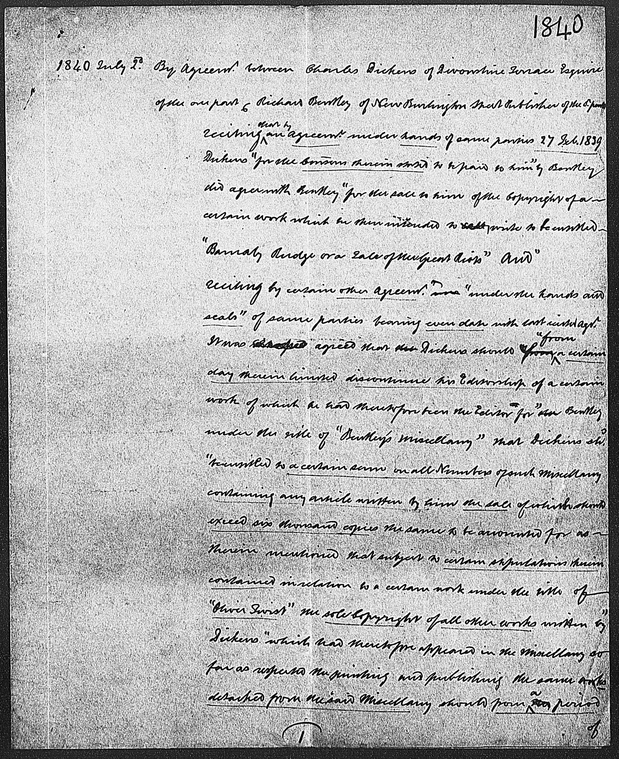 1840
1840 July 2d. By Agreemt. between Charles Dickens of Devonshire Terrace Esquire
of the one part & Richard Bentley of New Burlington Street Publisher of the o. part
reciting that by an agreemt. under hands of same parties 27 Feb. 1839
Dickens "for the consons therein stated to be paid to him" by Bentley
did agree with Bentley "for the sale to him of the Copyright of a
certain work which he then intended to write to be entitled
"Barnaby Rudge or a Tale of the Great Riots" And"
reciting by certain other Agreemt. "under the hands and
seals" of same parties bearing even date with last recited agt.
It was agreed that Dickens should "from a certain
day therein limited discontinue his Editorship of a certain
work of which he had theretofore been the Editor for" Bentley
under the title of "Bentley's Miscellany" that Dickens shd.
"be entitled to a certain sum on all Numbers of such Miscellany
containing any article written by him the sale of which should
exceed six thousand copies the same to be accounted for as
therein mentioned that subject to certain stipulations therein
contained in relation to a certain work under the title of
"Oliver Twist" the sole Copyright of all other works written by"
Dickens "which had theretofore appeared in the Miscellany so
far as respected the printing and publishing the same works
detached from the said Miscellany should from a period
of
1